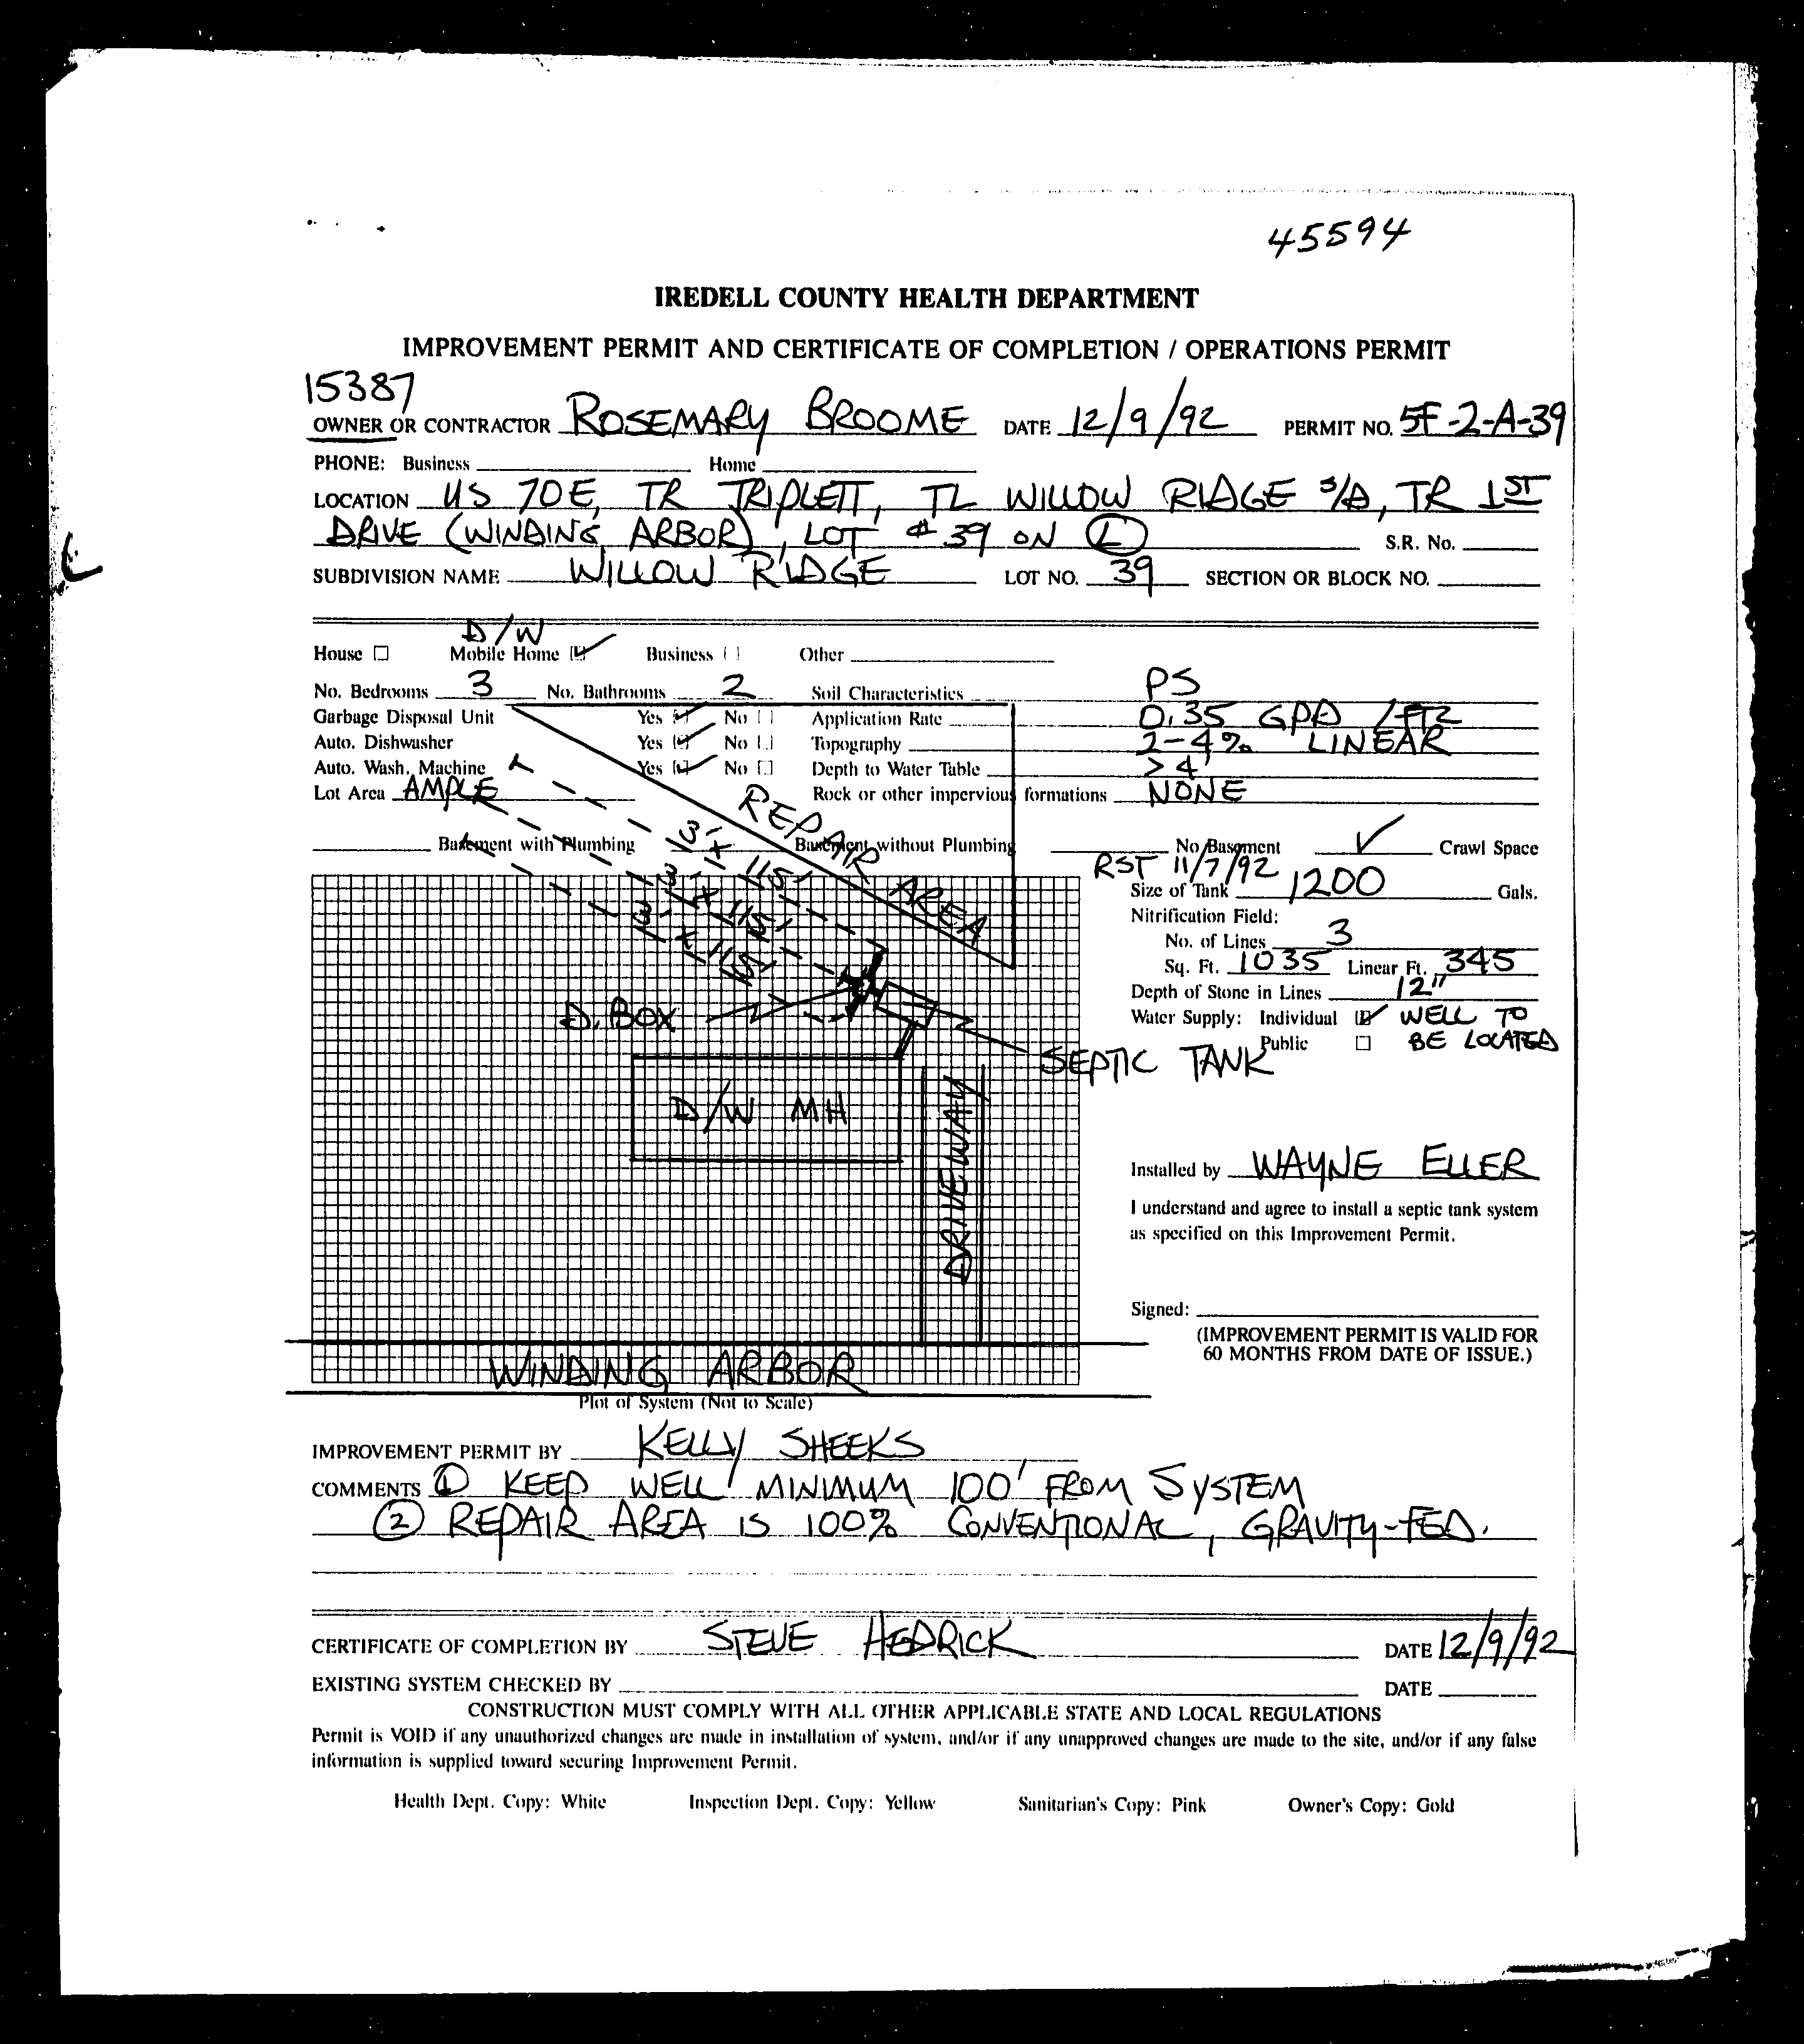 45594
IREDELL COUNTY HEALTH DEPARTMENT
IMPROVEMENT PERMIT AND CERTIFICATE OF COMPLETION / OPERATIONS PERMIT
15387
OWNER OR CONTRACTOR ROSEMARY BROOME DATE 12/9/92 PERMIT NO. 5F-2-A-39
PHONE: Business Home
LOCATION US 70E, TR TRIPLETT, TL WILLOW RIDGE S/D, TR 1ST
DRIVE (WINDING ARBOR), LOT # 39 ON L S.R. No.
SUBDIVISION NAME WILLOW RIDGE LOT NO. 39 SECTION OR BLOCK NO.
D/W
House Mobile Home Business Other
No. Bedrooms 3 No. Bathrooms 2 Soil Characteristics PS
Garbage Disposal Unit Yes No Application Rate 0.35 GPD /FT2
Auto. Dishwasher Yes No Topography 2-4% LINEAR
Auto. Wash. Machine Yes No Depth to Water Table >4'
Lot Area AMPLE Rock or other impervious formations NONE
REPAIR AREA
Basement with Plumbing Basement without Plumbing No Basement ✓ Crawl Space
RST 11/7/92
Size of Tank 1200 Gals.
3' x 115'
3' x 115'
3' x 115'
Nitrification Field:
No. of Lines 3
Sq. Ft. 1035 Linear Ft. 345
Depth of Stone in Lines 12"
Water Supply: Individual WELL TO
Public BE LOCATED
D. BOX
SEPTIC TANK
D/W MH
DRIVEWAY
Installed by WAYNE ELLER
I understand and agree to install a septic tank system
as specified on this Improvement Permit.
Signed:
(IMPROVEMENT PERMIT IS VALID FOR
60 MONTHS FROM DATE OF ISSUE.)
WINDING ARBOR
Plot of System (Not to Scale)
IMPROVEMENT PERMIT BY KELLY SHEEKS
COMMENTS ① KEEP WELL MINIMUM 100' FROM SYSTEM
② REPAIR AREA IS 100% CONVENTIONAL, GRAVITY-FED.
CERTIFICATE OF COMPLETION BY STEVE HEDRICK DATE 12/9/92
EXISTING SYSTEM CHECKED BY DATE
CONSTRUCTION MUST COMPLY WITH ALL OTHER APPLICABLE STATE AND LOCAL REGULATIONS
Permit is VOID if any unauthorized changes are made in installation of system, and/or if any unapproved changes are made to the site, and/or if any false
information is supplied toward securing Improvement Permit.
Health Dept. Copy: White Inspection Dept. Copy: Yellow Sanitarian's Copy: Pink Owner's Copy: Gold